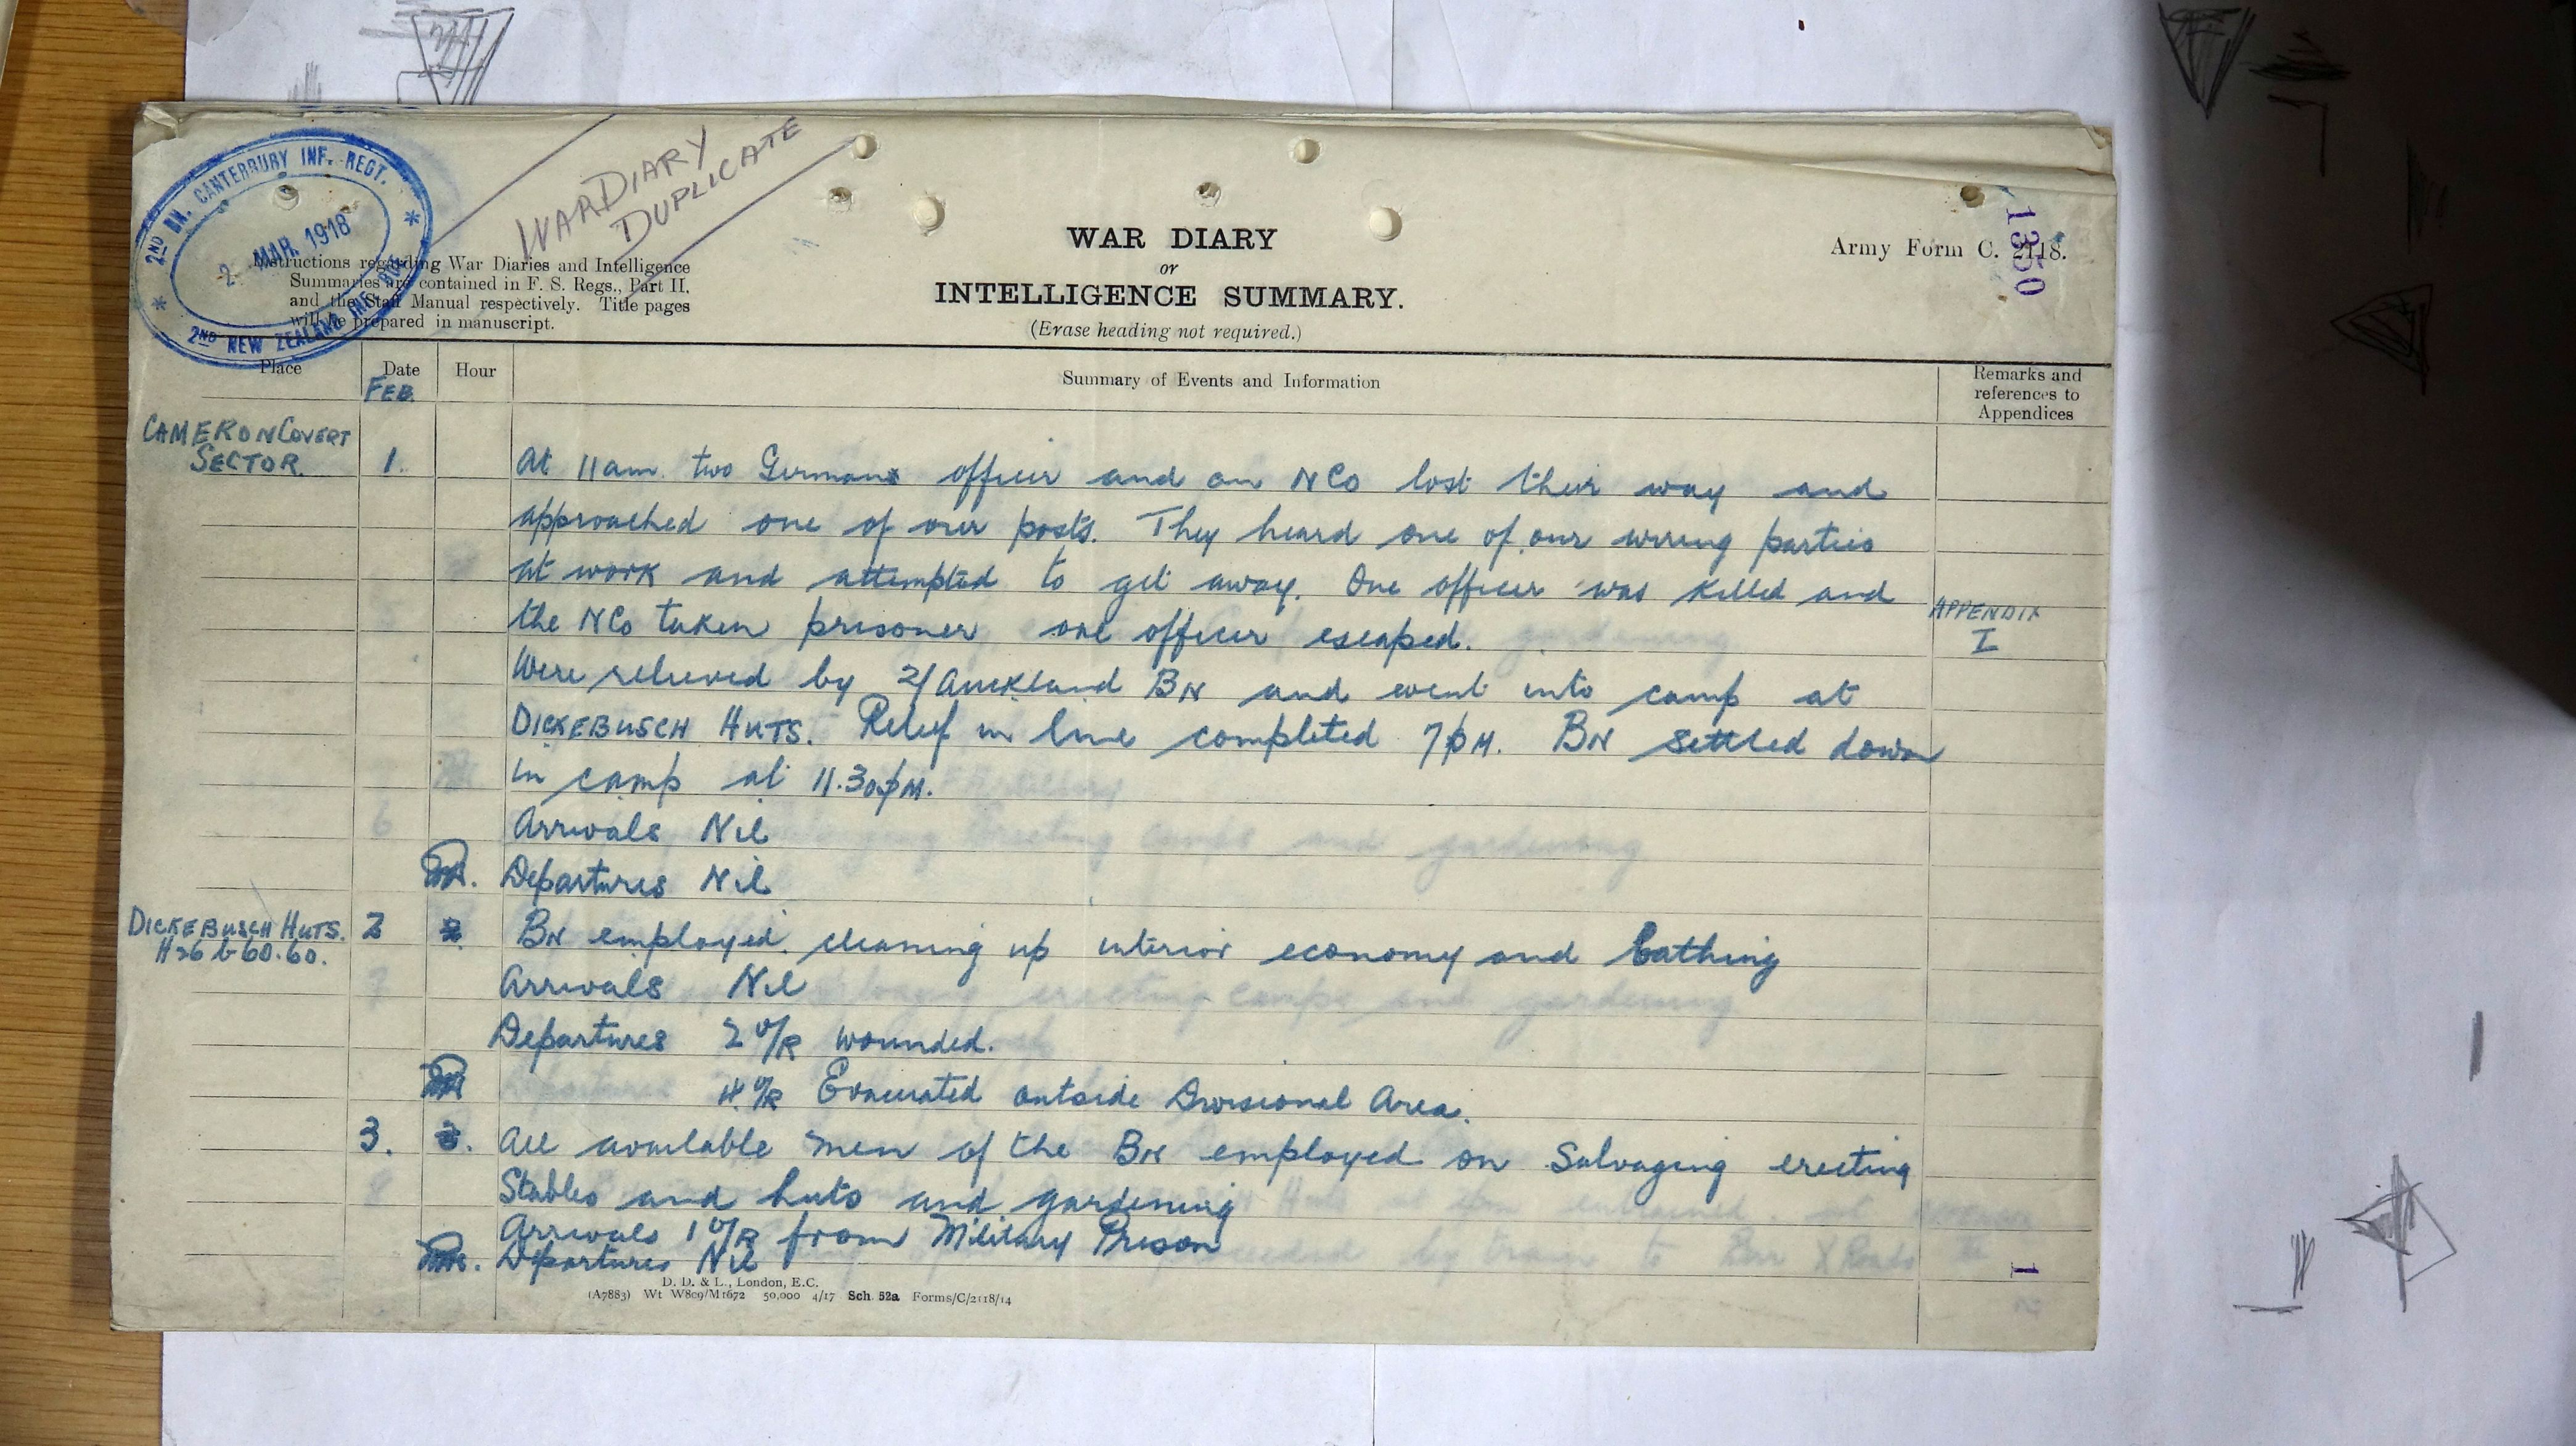 2ND BN. CANTERBURY INF. REGT.
2 MAR. 1918
2ND NEW ZEALAND INF. BDE.
WAR DIARY
DUPLICATE
Instructions regarding War Diaries and Intelligence
Summaries are contained in F. S. Regs., Part II.
and the Staff Manual respectively. Title pages
will be prepared in manuscript.
WAR DIARY
or
INTELLIGENCE SUMMARY.
(Erase heading not required.)
Army Form C. 2118.
1350
Place Date Hour Summary of Events and Information Remarks and references to Appendices
FEB.
CAMERON COVERT
SECTOR. 1. At 11am. two German officer and an NCo lost their way and
approached one of our posts. They heard one of our wiring parties
at work and attempted to get away. One officer was killed and
the NCo taken prisoner one officer escaped. APPENDIX I
Were relieved by 2/Auckland BN and went into camp at
DICKEBUSCH HUTS. Relief in line completed 7pM. BN settled down
in camp at 11.30pM.
Arrivals Nil
Departures Nil
DICKEBUSCH HUTS. 2 BN employed cleaning up interior economy and bathing
H26 b 60.60.
Arrivals Nil
Departures 2 O/R wounded.
4 O/R Evacuated outside Divisional Area.
3. All available men of the BN employed on Salvaging erecting
Stables and huts and gardening
Arrivals 1 O/R from Military Prison
Departures Nil
D. D. & L., London, E.C.
(A7883) Wt W809/M1672 50,000 4/17 Sch. 52a Forms/C/2118/14
1